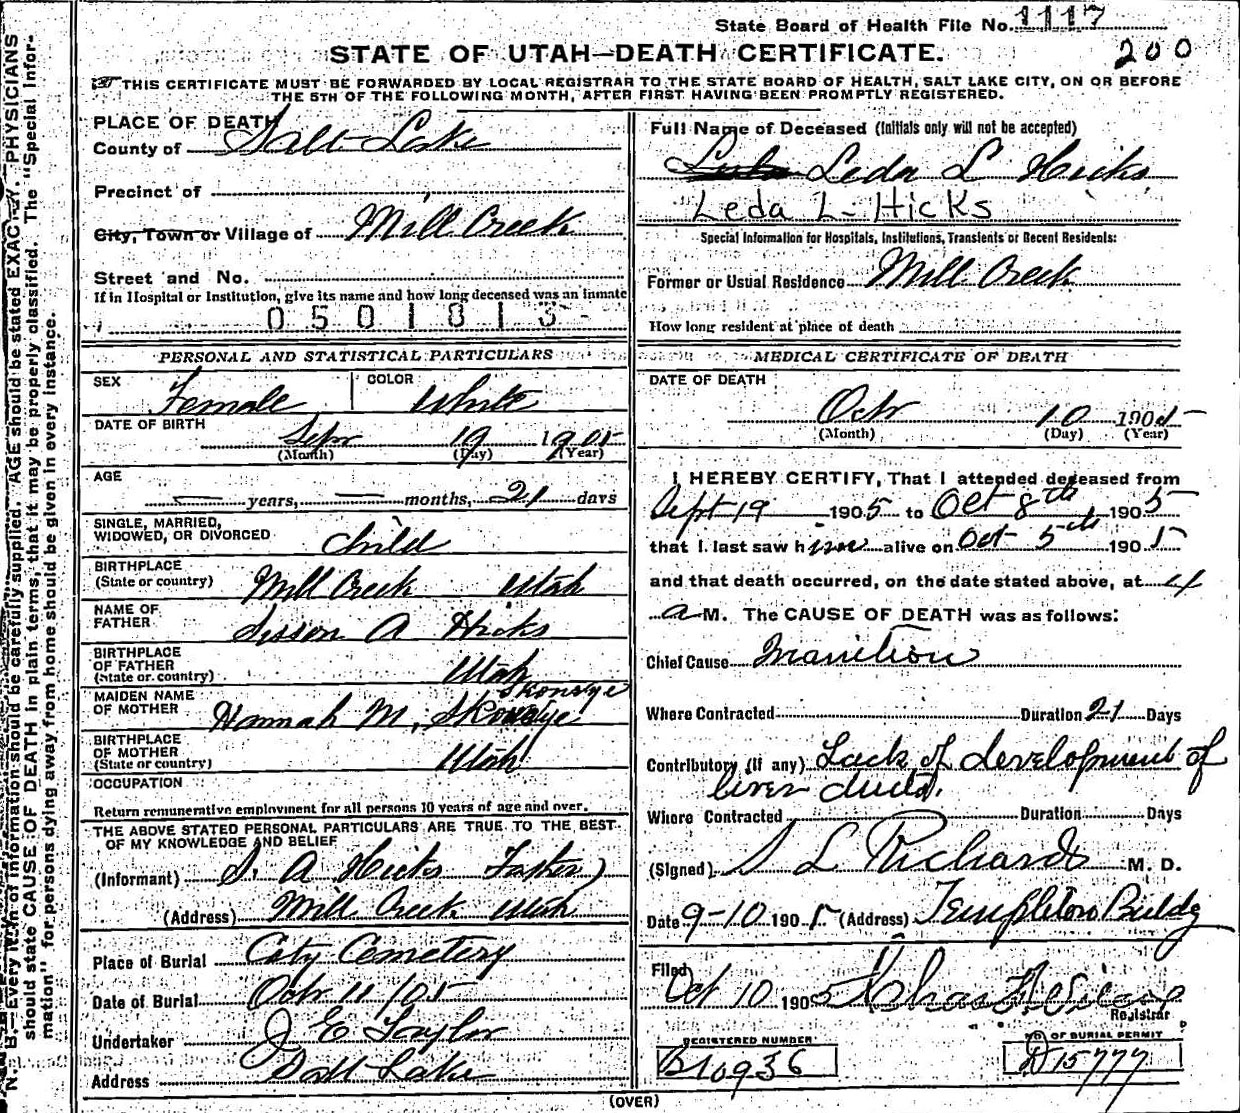 State Board of Health File No. 1117
200
STATE OF UTAH—DEATH CERTIFICATE.
THIS CERTIFICATE MUST BE FORWARDED BY LOCAL REGISTRAR TO THE STATE BOARD OF HEALTH, SALT LAKE CITY, ON OR BEFORE
THE 5TH OF THE FOLLOWING MONTH, AFTER FIRST HAVING BEEN PROMPTLY REGISTERED.
N. B.—Every item of information should be carefully supplied. AGE should be stated EXACTLY. PHYSICIANS
should state CAUSE OF DEATH in plain terms, that it may be properly classified. The "Special Infor-
mation" for persons dying away from home should be given in every instance.
PLACE OF DEATH
County of Salt Lake
Precinct of
City, Town or Village of Mill Creek
Street and No.
If in Hospital or Institution, give its name and how long deceased was an inmate
0501813
PERSONAL AND STATISTICAL PARTICULARS
SEX Female COLOR White
DATE OF BIRTH Sept 19 1905
(Month) (Day) (Year)
AGE
— years, — months, 21 days
SINGLE, MARRIED,
WIDOWED, OR DIVORCED child
BIRTHPLACE
(State or country) Mill Creek Utah
NAME OF
FATHER Sisson A Hicks
BIRTHPLACE
OF FATHER
(State or country) Utah
MAIDEN NAME
OF MOTHER Hannah M.
BIRTHPLACE
OF MOTHER
(State or country) Utah
OCCUPATION
Return remunerative employment for all persons 10 years of age and over.
THE ABOVE STATED PERSONAL PARTICULARS ARE TRUE TO THE BEST
OF MY KNOWLEDGE AND BELIEF
(Informant) S. A Hicks Father)
(Address) Mill Creek Utah
Place of Burial City Cemetery
Date of Burial Octr 11/05
Undertaker J E Taylor
Address Salt Lake
Full Name of Deceased (Initials only will not be accepted)
Lula Leda L Hicks
Leda L. Hicks
Special Information for Hospitals, Institutions, Transients or Recent Residents:
Former or Usual Residence Mill Creek
How long resident at place of death
MEDICAL CERTIFICATE OF DEATH
DATE OF DEATH
Octr 10 1905
(Month) (Day) (Year)
I HEREBY CERTIFY, That I attended deceased from
Sept 19 1905 to Oct 8th 1905
that I last saw him alive on Oct 5th 1905
and that death occurred, on the date stated above, at 4
a M. The CAUSE OF DEATH was as follows:
Chief Cause Inanition
Where Contracted Duration 21 Days
Contributory (if any) Lack of development of
liver ducts.
Where Contracted Duration Days
(Signed) S L Richards M. D.
Date 9-10 1905 (Address) Templeton Buldg
Filed Oct 10 1905
Registrar
REGISTERED NUMBER
B10936
NO OF BURIAL PERMIT
D15777
(OVER)